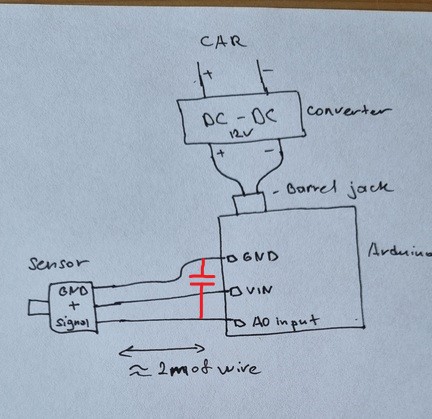 CAR
+ -
DC - DC
12V
converter
+ -
- Barrel jack
Arduino
GND
VIN
A0 input
Sensor
GND
+
signal
≈ 2m of wire